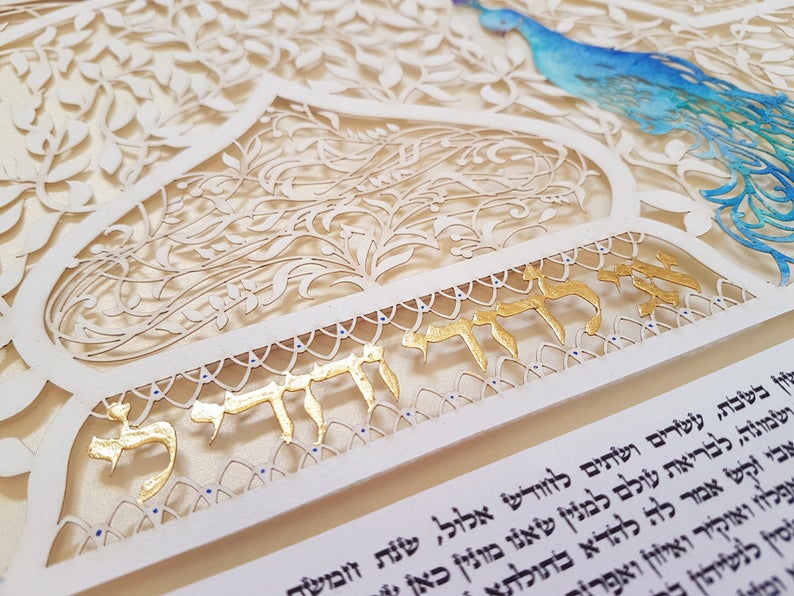 אני לדודי ודודי לי
בשבת, עשרים ושתים לחודש אלול, שנת חמשת
ושמונה, לבריאת עולם למנין שאנו מונין כאן
אמר לה להדא בתולתא
ואוקיר ואיזון
לנשיהון